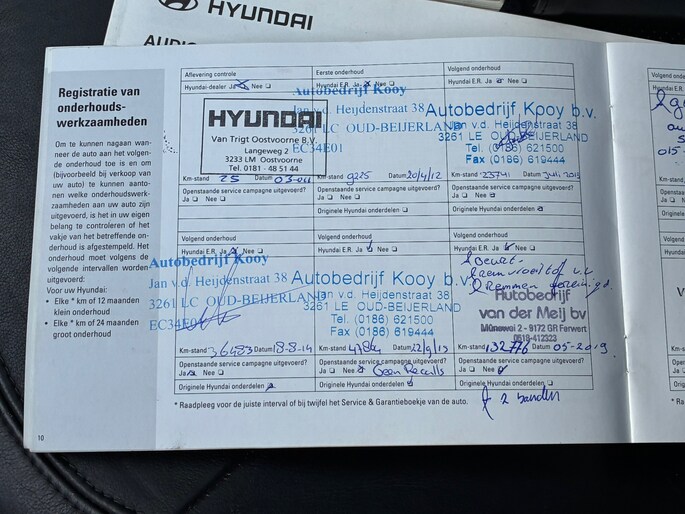 HYUNDAI
Registratie van
onderhouds-
werkzaamheden
Om te kunnen nagaan wan-
neer de auto aan het volgen-
de onderhoud toe is en om
(bijvoorbeeld bij verkoop van
uw auto) te kunnen aanto-
nen welke onderhoudswerk-
zaamheden aan uw auto zijn
uitgevoerd, is het in uw eigen
belang te controleren of het
vakje van het betreffende on-
derhoud is afgestempeld. Het
onderhoud moet volgens de
volgende intervallen worden
uitgevoerd:
Voor uw Hyundai:
• Elke * km of 12 maanden
klein onderhoud
• Elke * km of 24 maanden
groot onderhoud
10
Aflevering controle
Hyundai-dealer Ja Nee
HYUNDAI
Van Trigt Oostvoorne B.V.
Langeweg 2
3233 LM Oostvoorne
Tel. 0181 - 48 51 44
Km-stand 25 Datum
Openstaande service campagne uitgevoerd?
Ja Nee
Eerste onderhoud
Hyundai E.R. Ja Nee
Autobedrijf Kooy
Jan v.d. Heijdenstraat 38
3261 LC OUD-BEIJERLAND
EC34E01
Km-stand 9225 Datum 20/4/12
Openstaande service campagne uitgevoerd?
Ja Nee
Originele Hyundai onderdelen
Volgend onderhoud
Hyundai E.R. Ja Nee
Autobedrijf Kooy b.v.
Jan v.d. Heijdenstraat 38
3261 LE OUD-BEIJERLAND
Tel. (0186) 621500
Fax (0186) 619444
Km-stand 23741 Datum juli
Openstaande service campagne uitgevoerd?
Ja Nee
Originele Hyundai onderdelen
Volgend onderhoud
Hyundai E.R. Ja Nee
Autobedrijf Kooy
Jan v.d. Heijdenstraat 38
3261 LC OUD-BEIJERLAND
EC34E01
Km-stand 36483 Datum 18-8-14
Openstaande service campagne uitgevoerd?
Ja Nee
Originele Hyundai onderdelen
Volgend onderhoud
Hyundai E.R. Ja Nee
Autobedrijf Kooy b.v.
Jan v.d. Heijdenstraat 38
3261 LE OUD-BEIJERLAND
Tel. (0186) 621500
Fax (0186) 619444
Km-stand Datum
Openstaande service campagne uitgevoerd?
Ja Nee Geen Recalls
Originele Hyundai onderdelen
Volgend onderhoud
Hyundai E.R. Ja Nee
Autobedrijf
van der Meij bv
2 - 9172 GR Ferwert
0518-412323
Km-stand 132776 Datum 05-2019
Openstaande service campagne uitgevoerd?
Ja Nee
Originele Hyundai onderdelen
2 banden
* Raadpleeg voor de juiste interval of bij twijfel het Service & Garantieboekje van de auto.